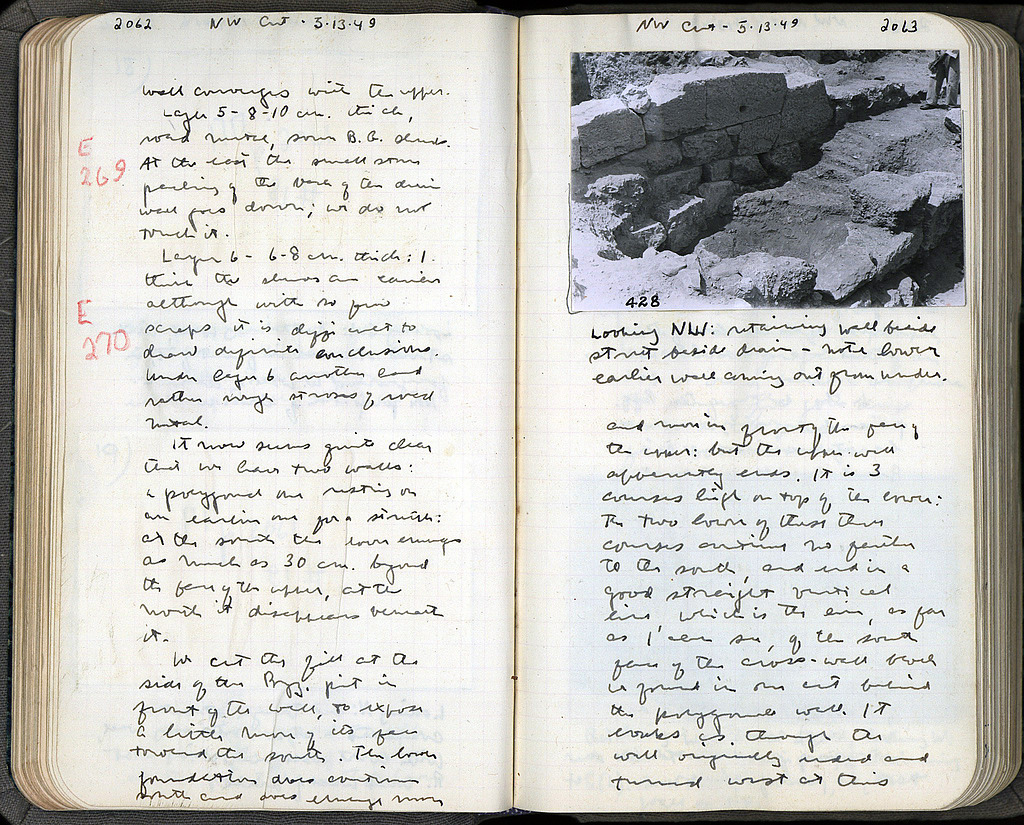 2062 NW Cut - 5.13.49
wall converges with the upper.
Layer 5 - 8-10 cm. thick,
road metal, some B.G. sherds.
E
269
At the east the small stone
packing of the back of the drain
wall goes down; we do not
touch it.
Layer 6 - 6-8 cm. thick: I
think the sherds are earlier
E
270
although with so few
scraps it is difficult to
draw definite conclusions.
Under layer 6 another hard
rather rough stratum of road
metal.
It now seems quite clear
that we have two walls:
a polygonal one resting on
an earlier one for a stretch:
at the south the lower emerges
as much as 30 cm. beyond
the face of the upper, at the
north it disappears beneath
it.
We cut the fill at the
side of the Byz. pit in
front of the wall, to expose
a little more of its face
toward the south. The lower
foundation does continue
south and does emerge more
NW Cut - 5.13.49 2063
428
Looking NW: retaining wall beside
street beside drain - note lower
earlier wall coming out from under.
and more in front of the face of
the upper: but the upper wall
apparently ends. It is 3
courses high on top of the lower:
the two lower of these three
courses continue no farther
to the south, and end in a
good straight vertical
line, which is the line, as far
as I can see, of the south
face of the cross-wall
is found in our cut behind
the polygonal wall. It
looks as though the
wall originally ended and
turned west at this